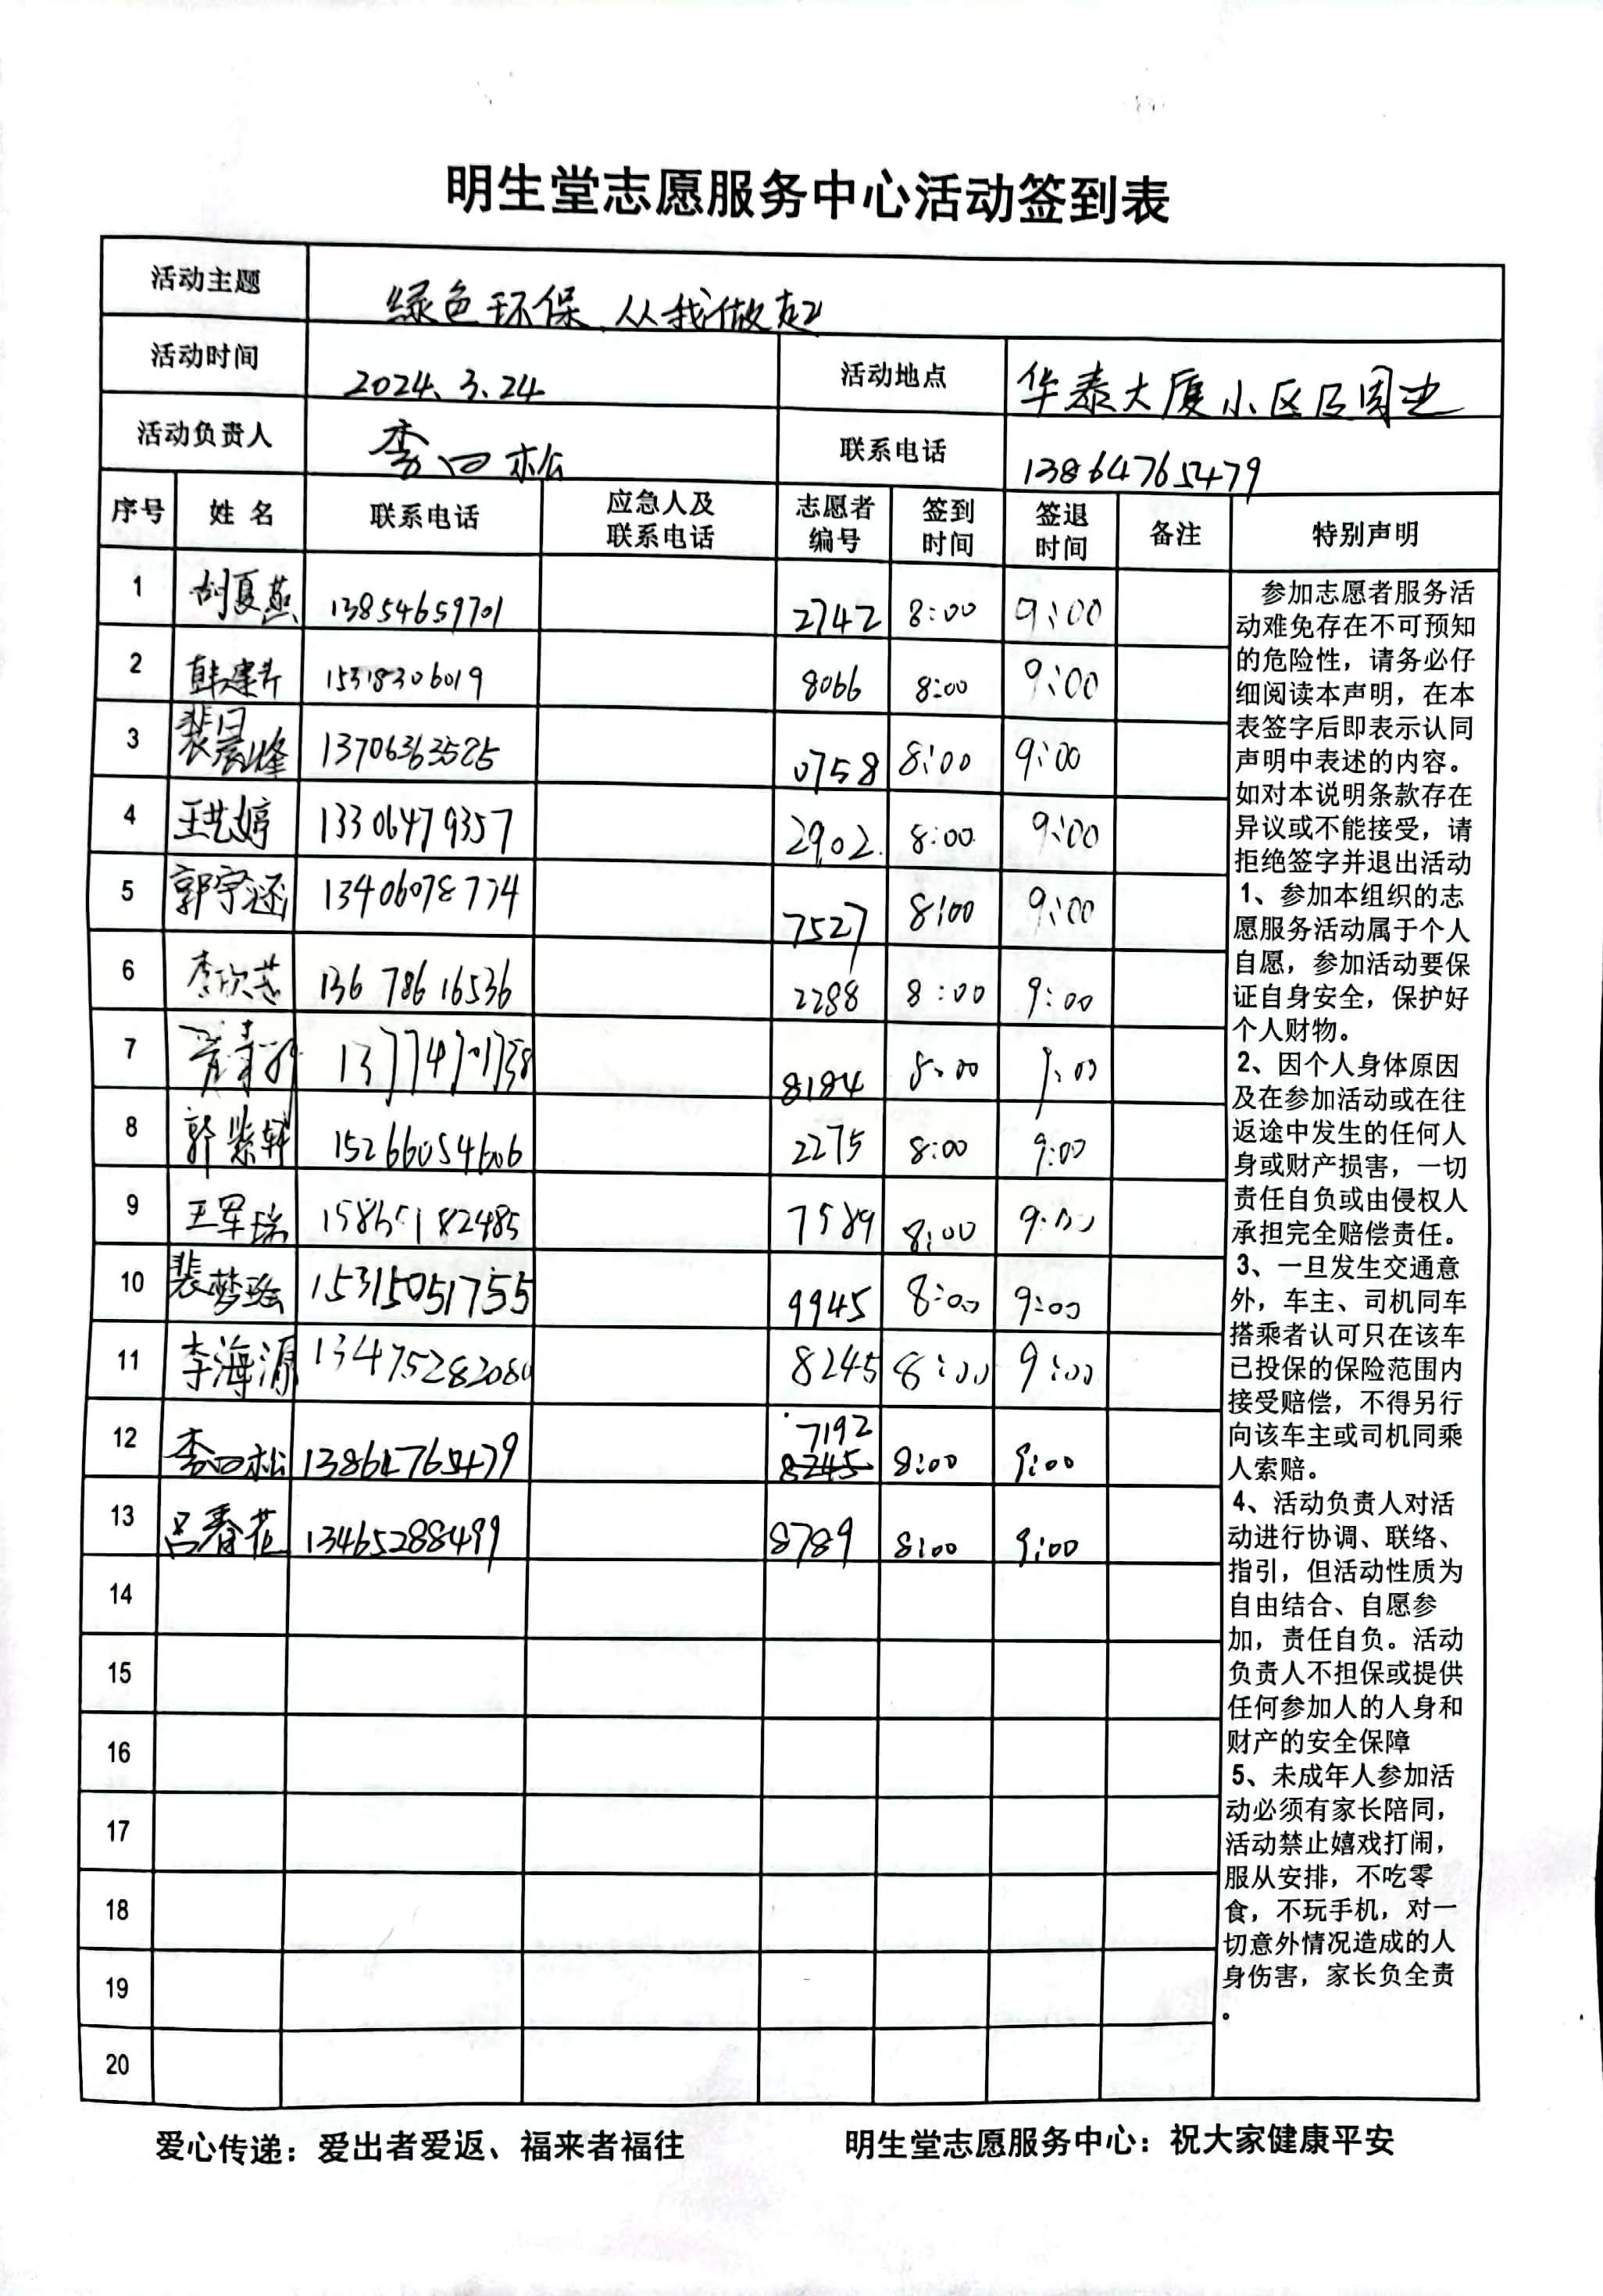 明生堂志愿服务中心活动签到表
活动主题 绿色环保、从我做起
活动时间 2024.3.24 活动地点 华泰大厦小区及周边
活动负责人 李四松 联系电话 13864765479
序号 姓名 联系电话 应急人及联系电话 志愿者编号 签到时间 签退时间 备注 特别声明
1 胡夏燕 13854659701 2742 8:00 9:00
2 韩建芹 15318306019 8066 8:00 9:00
3 裴晨峰 13706363585 0758 8:00 9:00
4 王艺婷 13306479357 2902. 8:00 9:00
5 郭宇涵 13406078774 7527 8:00 9:00
6 李欣芸 13678616536 2288 8:00 9:00
7 8184 8:00 9:00
8 郭紫轩 15266054606 2275 8:00 9:00
9 王军瑞 15865182485 7589 8:00 9:00
10 裴梦瑶 15315051755 9945 8:00 9:00
11 李海源 13475282080 8245 8:00 9:00
12 李四松 13864765479 7192 8245 8:00 9:00
13 吕春花 13465288499 8789 8:00 9:00
14
15
16
17
18
19
20
参加志愿者服务活
动难免存在不可预知
的危险性，请务必仔
细阅读本声明，在本
表签字后即表示认同
声明中表述的内容。
如对本说明条款存在
异议或不能接受，请
拒绝签字并退出活动
1、参加本组织的志
愿服务活动属于个人
自愿，参加活动要保
证自身安全，保护好
个人财物。
2、因个人身体原因
及在参加活动或在往
返途中发生的任何人
身或财产损害，一切
责任自负或由侵权人
承担完全赔偿责任。
3、一旦发生交通意
外，车主、司机同车
搭乘者认可只在该车
已投保的保险范围内
接受赔偿，不得另行
向该车主或司机同乘
人索赔。
4、活动负责人对活
动进行协调、联络、
指引，但活动性质为
自由结合、自愿参
加，责任自负。活动
负责人不担保或提供
任何参加人的人身和
财产的安全保障
5、未成年人参加活
动必须有家长陪同，
活动禁止嬉戏打闹，
服从安排，不吃零
食，不玩手机，对一
切意外情况造成的人
身伤害，家长负全责
。
爱心传递：爱出者爱返、福来者福往 明生堂志愿服务中心：祝大家健康平安